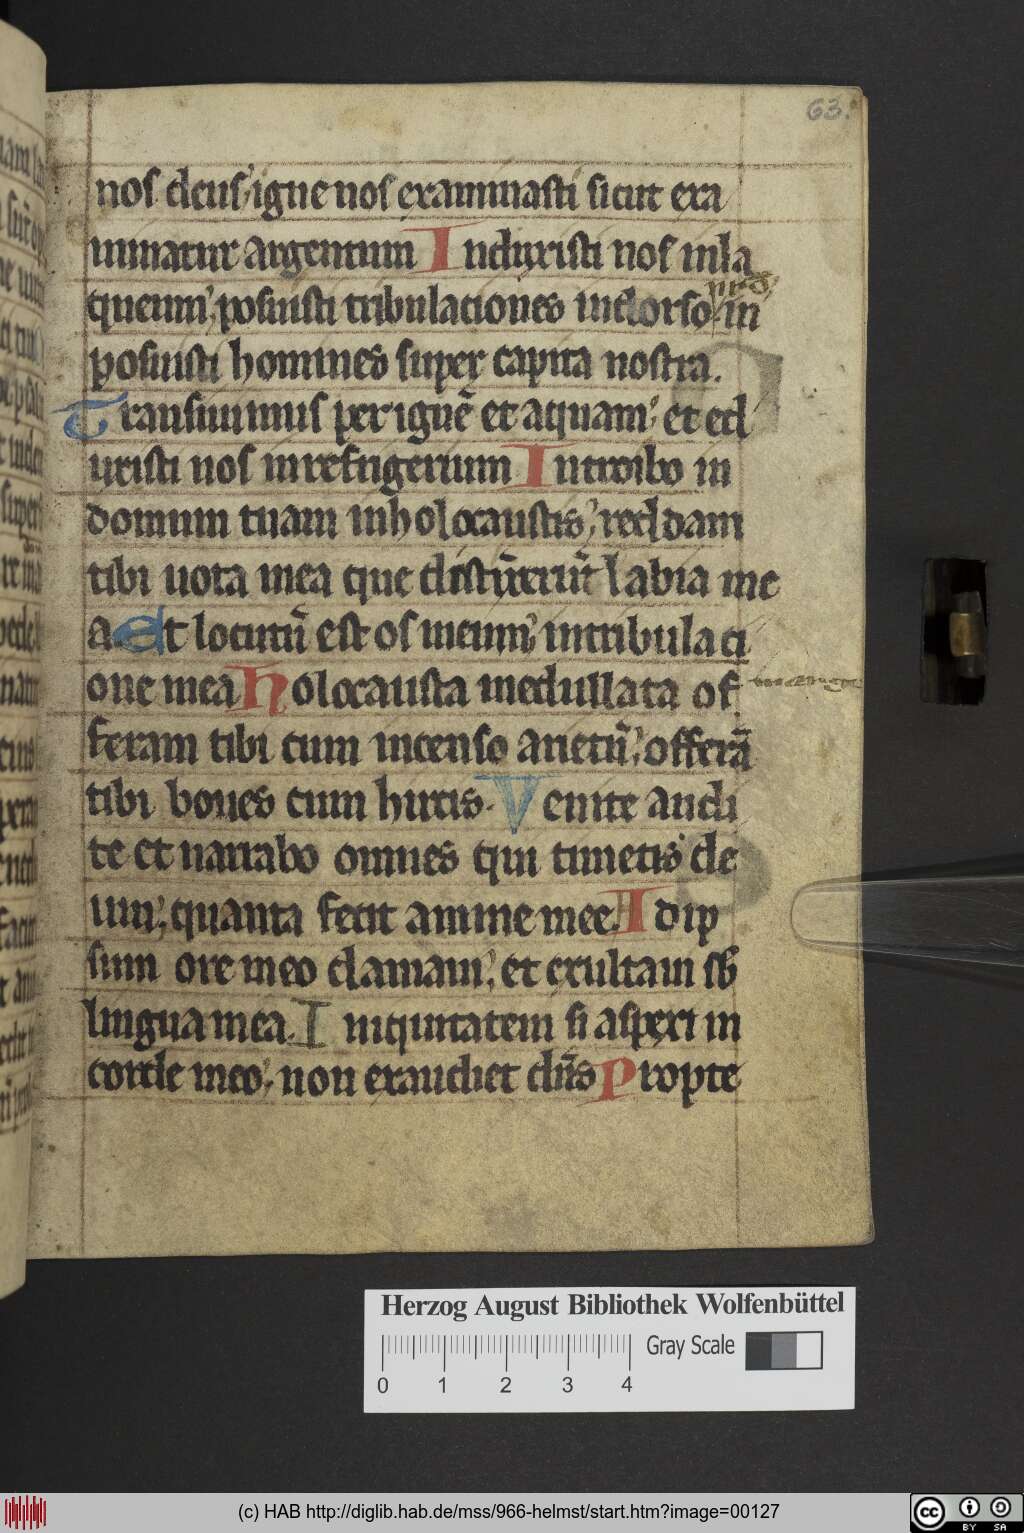 63.
nos deus, igne nos examinasti sicut exa
minatur argentum Induxisti nos inla
queum, posuisti tribulaciones indorso in
posuisti homines super capita nostra.
Transiuimus per ignē et aquam, et ed
uxisti nos inrefrigerium Introibo in
domum tuam inholocaustis, reddam
tibi uota mea que distīxerūt labia me
a Et locutū est os meum, intribulaci
one mea Holocausta medullata of
feram tibi cum incenso arietū, offerā
tibi boues cum hircis. Venite audi
te et narrabo omnes qui timetis de
um, quanta fecit anime mee. Ad ip
sum ore meo clamaui, et exultaui sb
lingua mea. Iniquitatem si aspexi in
corde meo, non exaudiet dn̄s Propte
Herzog August Bibliothek Wolfenbüttel
Gray Scale
0 1 2 3 4
(c) HAB http://diglib.hab.de/mss/966-helmst/start.htm?image=00127
cc BY SA